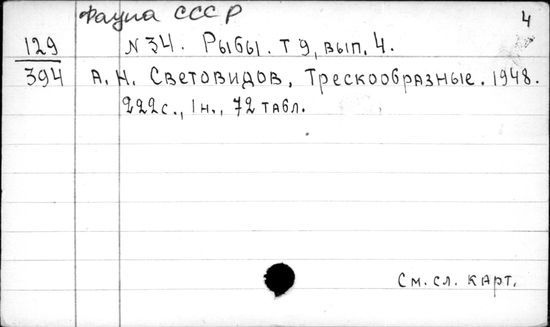 Фауна СССР
4
129 N 34. Рыбы. Т 9, вып. 4.
394 А. Н. Световидов, Трескообразные. 1948.
222с., 1н., 72 табл.
См. сл. карт.